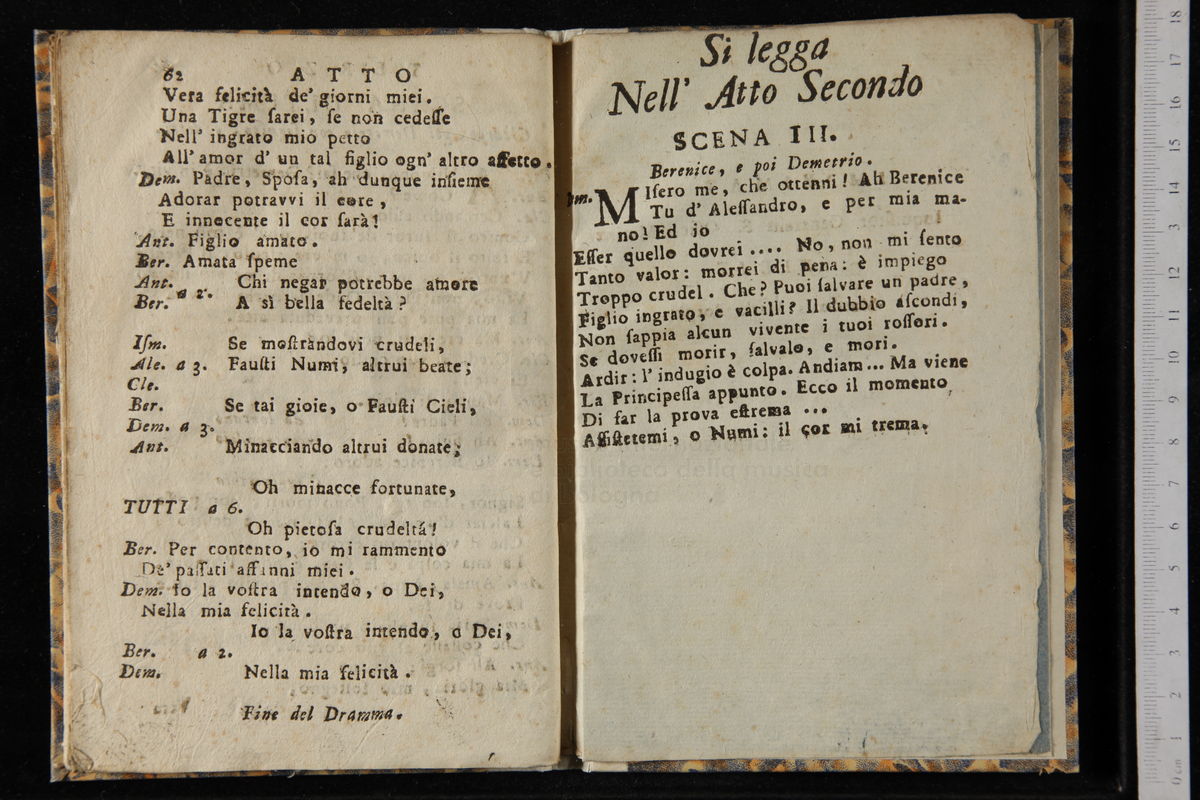 62 ATTO
Vera felicità de' giorni miei.
Una Tigre ſarei, ſe non cedeſſe
Nell' ingrato mio petto
All' amor d' un tal figlio ogn' altro affetto.
Dem. Padre, Spoſa, ah dunque inſieme
Adorar potravvi il core,
E innocente il cor ſarà!
Ant. Figlio amato.
Ber. Amata ſpeme
Ant. Chi negar potrebbe amore
a 2.
Ber. A sì bella fedeltà?
Iſm. Se moſtrandovi crudeli,
Ale. a 3. Fauſti Numi, altrui beate;
Cle.
Ber. Se tai gioie, o Fauſti Cieli,
Dem. a 3.
Ant. Minacciando altrui donate;
Oh minacce fortunate,
TUTTI a 6.
Oh pietoſa crudeltá!
Ber. Per contento, io mi rammento
De' paſſati affanni miei.
Dem. Io la voſtra intendo, o Dei,
Nella mia felicità.
Io la voſtra intendo, o Dei,
Ber. a 2.
Dem. Nella mia felicità.
Fine del Dramma.
Si legga
Nell' Atto Secondo
SCENA III.
Berenice, e poi Demetrio.
Dem. MIſero me, che ottenni! Ah Berenice
Tu d' Aleſſandro, e per mia ma-
no! Ed io
Eſſer quello dovrei .... No, non mi ſento
Tanto valor: morrei di pena: è impiego
Troppo crudel. Che? Puoi ſalvare un padre,
Figlio ingrato, e vacilli? Il dubbio aſcondi,
Non ſappia alcun vivente i tuoi roſſori.
Se doveſſi morir, ſalvalo, e mori.
Ardir: l' indugio è colpa. Andiam ... Ma viene
La Principeſſa appunto. Ecco il momento
Di far la prova eſtrema ...
Aſſiſtetemi, o Numi: il cor mi trema.
biblioteca della musica
di Bologna